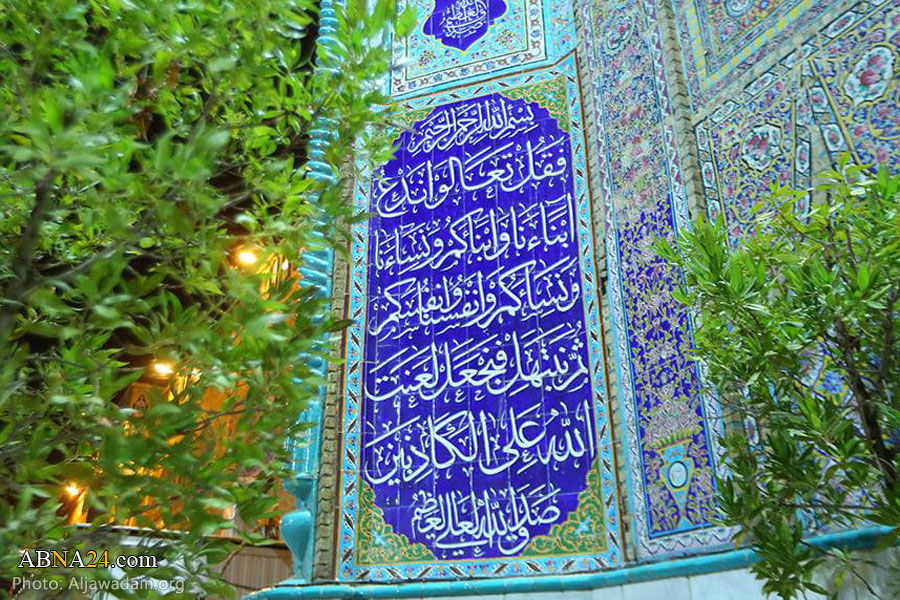 بسم الله الرحمن الرحيم
فقل تعالوا ندع
ابناءنا وابنائكم ونساءنا
ونسائكم وانفسنا وانفسكم
ثم نبتهل فنجعل لعنت
الله على الكاذبين
صدق الله العلي العظيم
ABNA24.com
Photo: Aljawadain.org